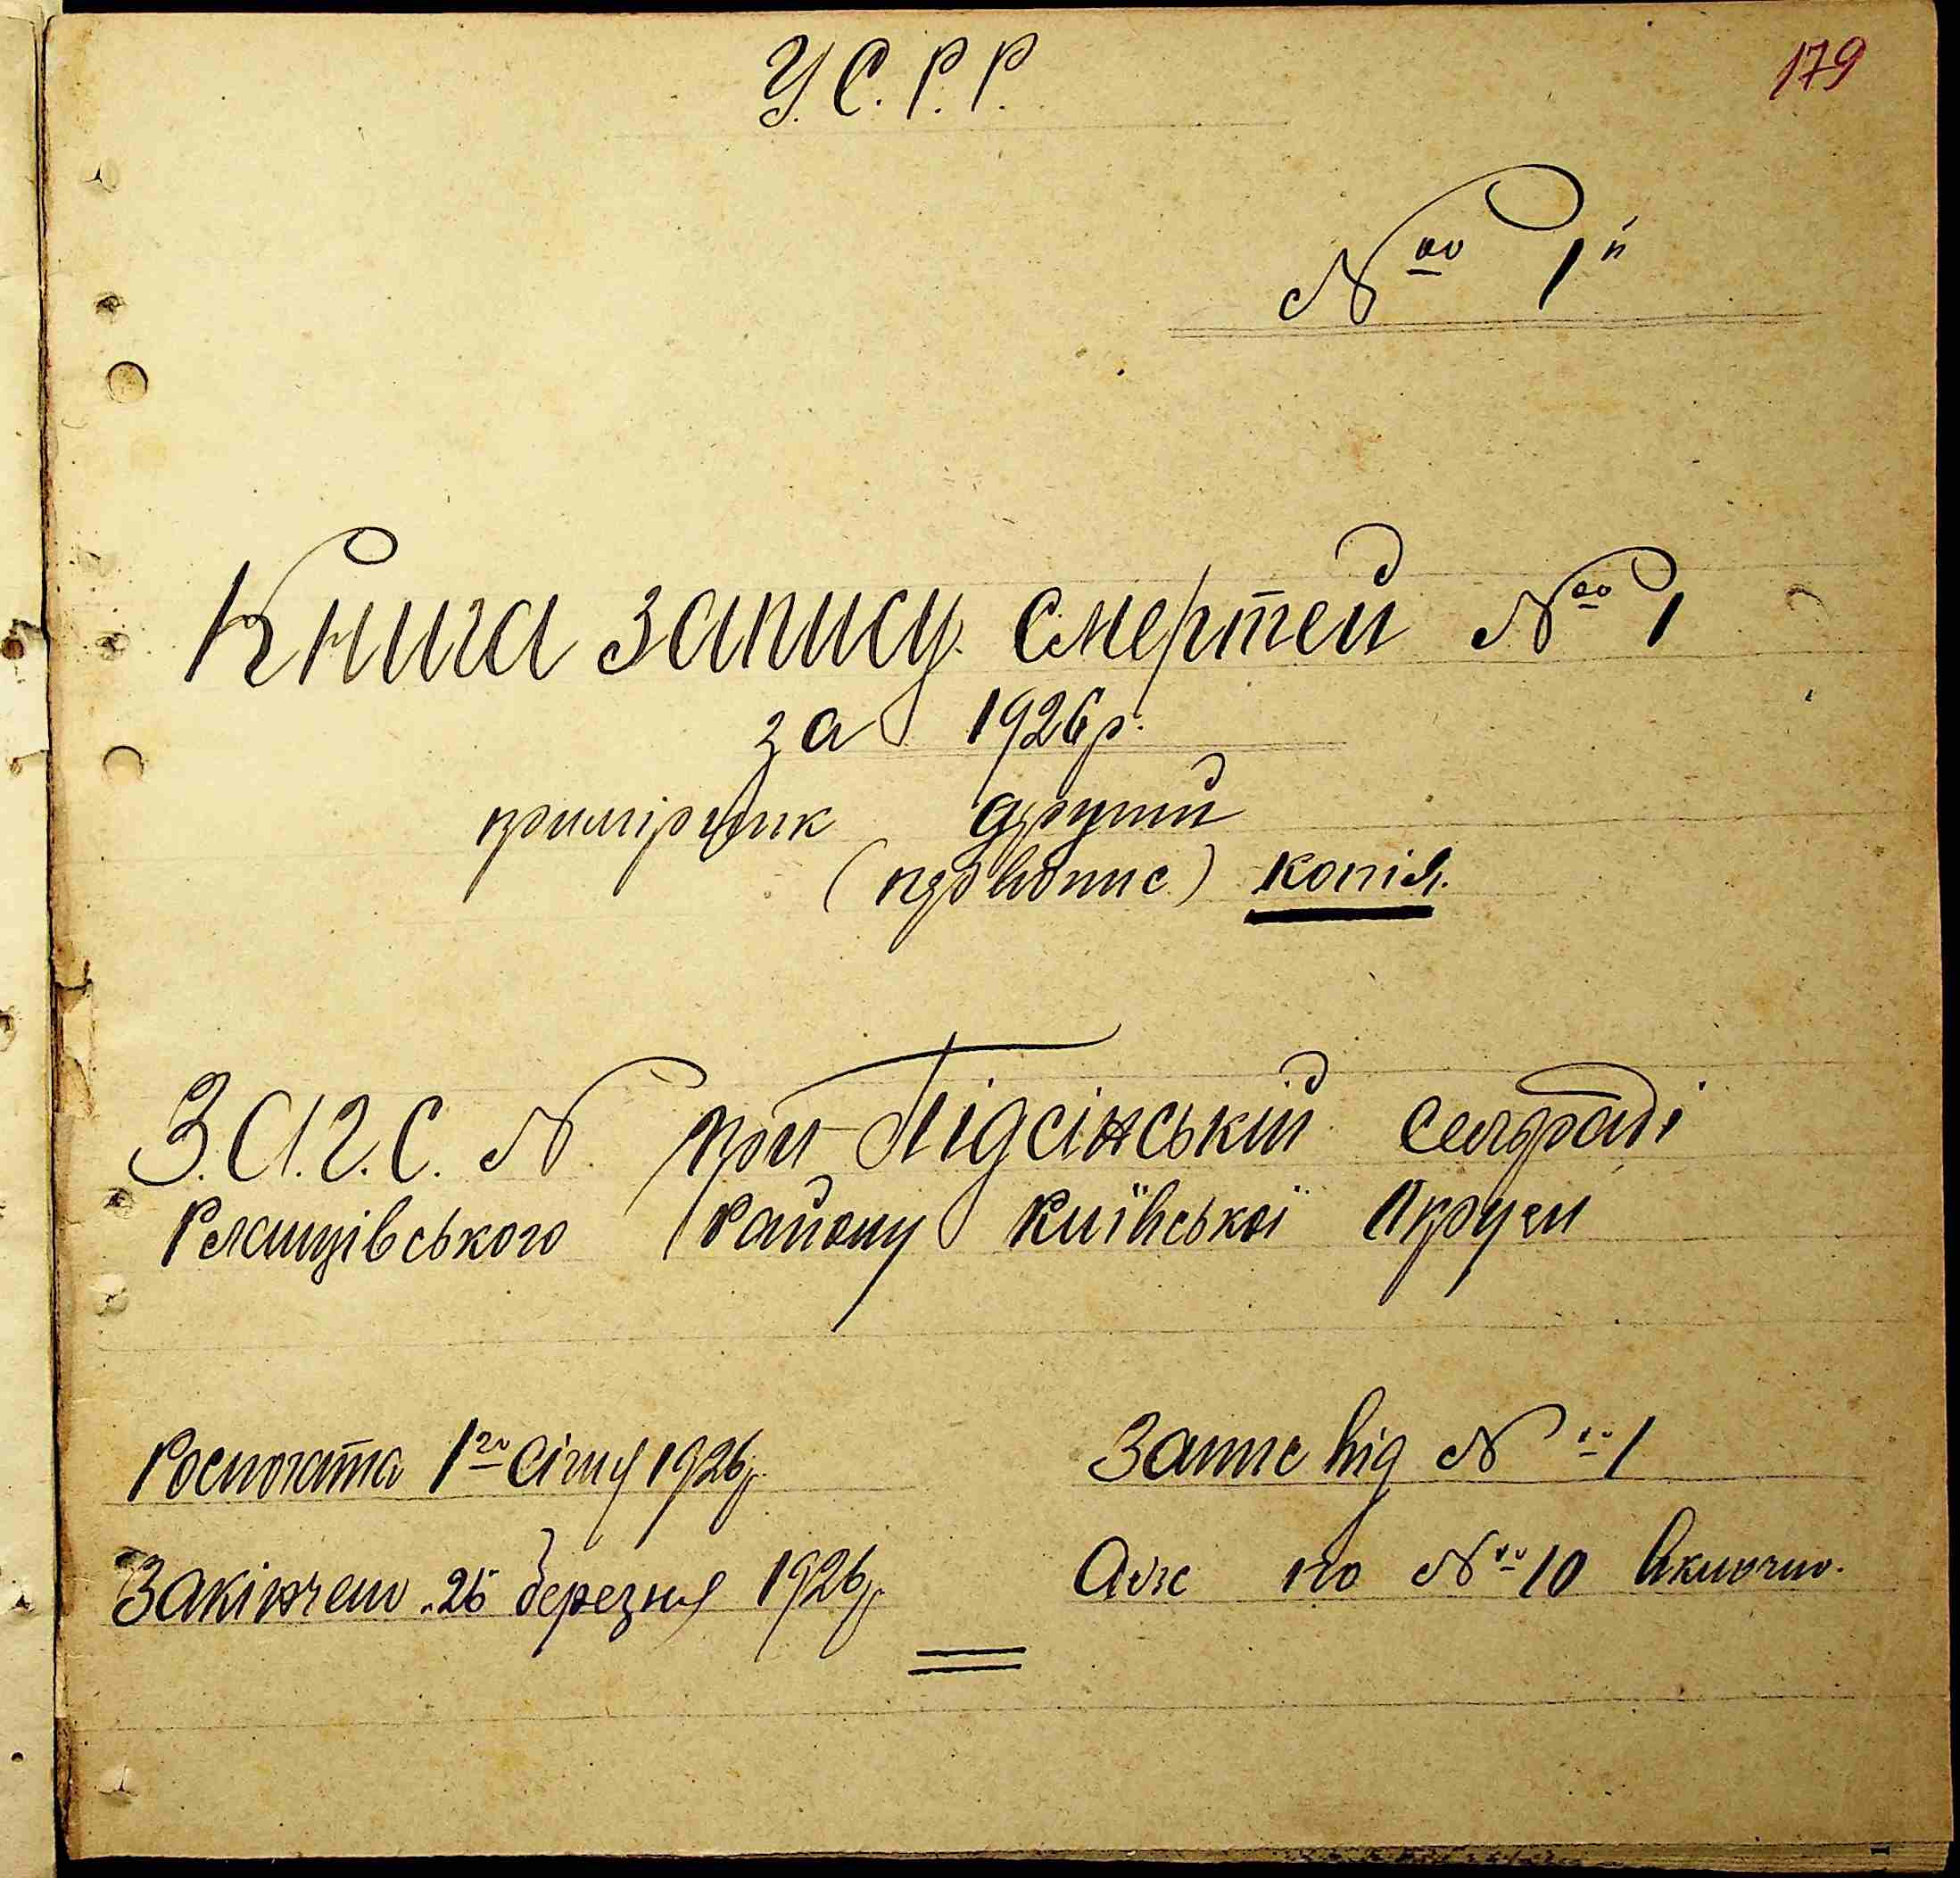 У.С.Р.Р.
179
№ 1й
Книга запису смертей № 1
за 1926 р.
примірник другий
(первопис) копія.
З.А.Г.С. № при Підсінській сельраді
Ржищівського Району Київської Округи
Роспочата 1го Січня 1926 р.
Запис від № 1
Закінчено 25 березня 1926 р.
Аже по № 10 включно.